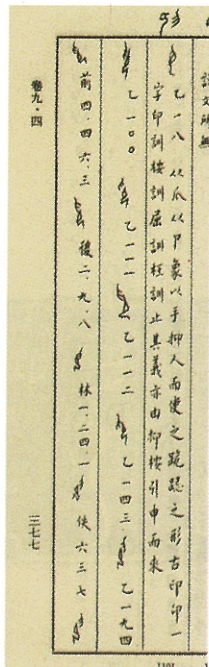 說文所無
乙一八 从爪从卩象以手抑人而使之跽跽之形古印卬一
字印訓按訓屈訓枉訓止其義亦由抑按引申而來
乙一〇〇 乙一一一 乙一一二 乙一四三 乙一九四
前四·四六·三 後二·九·八 林一·二四·一 佚六三七
卷九·四
三二七七